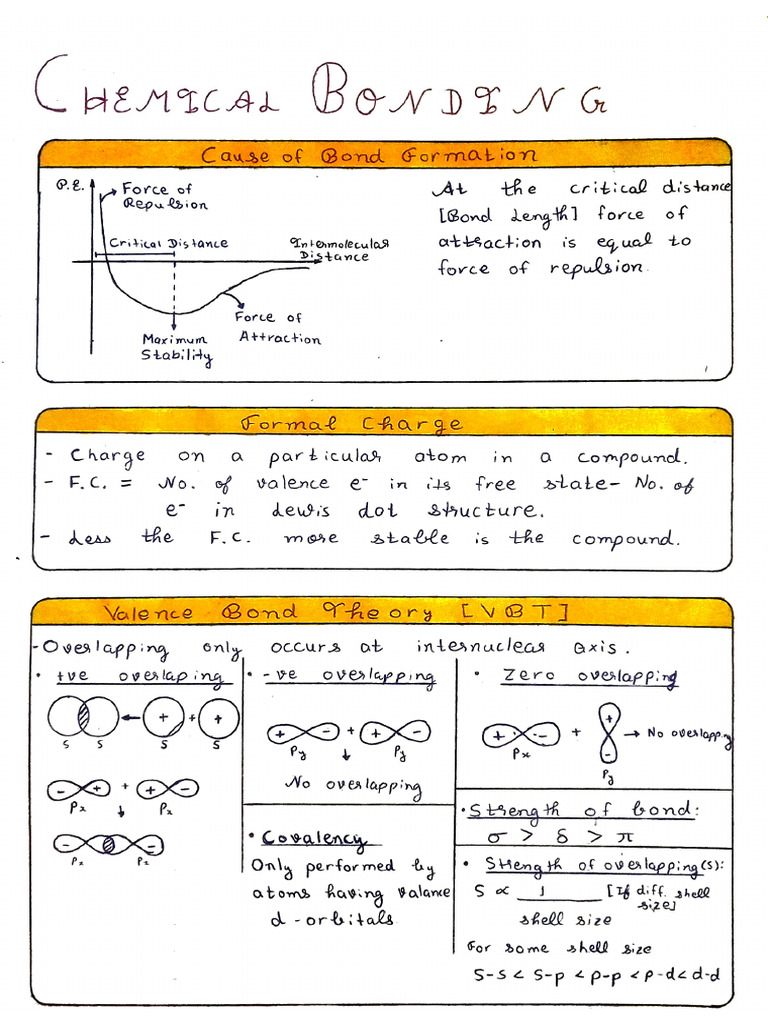 CHEMICAL BONDING
Cause of Bond Formation
P.E.
Force of
Repulsion
Critical Distance
Intermolecular
Distance
Force of
Attraction
Maximum
Stability
At the critical distance
[Bond Length] force of
attraction is equal to
force of repulsion.
Formal Charge
- Charge on a particular atom in a compound.
- F.C. = No. of valence e⁻ in its free state - No. of
e⁻ in Lewis dot structure.
- Less the F.C. more stable is the compound.
Valence Bond Theory [VBT]
- Overlapping only occurs at internuclear axis.
• +ve overlaping
S S ← + + +
S S S S
- + + + -
Px Px
↓
- -
Px Px
• -ve overlapping
+ - + + -
Py Py
↓
No overlapping
• Zero overlapping
+ - + + → No overlapping
Px
-
Py
• Covalency
Only performed by
atoms having valance
d-orbitals
• Strength of bond:
σ > δ > π
• Strength of overlapping(s):
S ∝ 1 [If diff. shell
size]
shell size
For some shell size
S-S < S-p < p-p < p-d < d-d